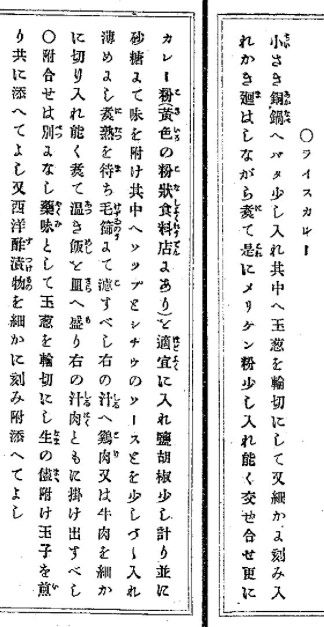 〇ライスカレー
小さき銅鍋へバタ少し入れ其中へ玉葱を輪切にして又細かよ刻み入
れかき廻はしながら煮て是にメリケン粉少し入れ能く交せ合せ更に
カレー粉(黄色の粉狀食料店よあり)を適宜に入れ鹽胡椒少し計り並に
砂糖よて味を附け其中へソップとシチウのソースとを少しづゝ入れ
薄めよし煮熟を待ち毛篩よて漉すべし右の汁へ鶏肉又は牛肉を細か
に切り入れ能く煮て温き飯を皿へ盛り右の汁肉ともに掛け出すべし
〇附合せは別よなし藥味として玉葱を輪切にし生の儘附け玉子を煎
り共に添へてよし又西洋酢漬物を細かに刻み附添へてよし